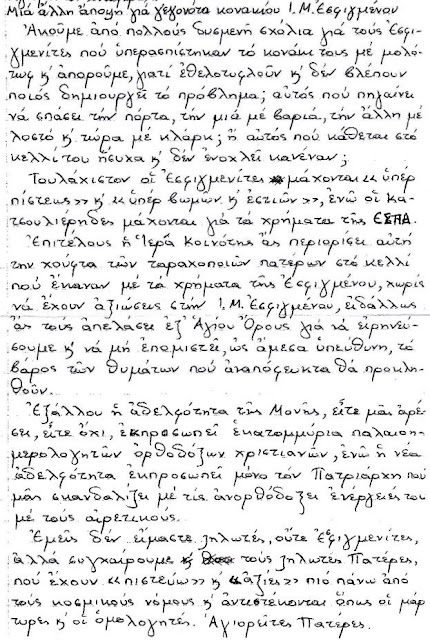 Μιά ἄλλη ἄποψη γιά γεγονότα κονακίου Ι.Μ. Ἐσφιγμένου
Ἀκοῦμε ἀπό πολλούς δυσμενή σχόλια γιά τούς Ἐσφ-
ιγμενίτες πού ὑπερασπίστηκαν τό κονάκι τους μέ μολό-
τωφ κ' ἀποροῦμε, γιατί ἐθελοτυφλοῦν κ' δέν βλέπουν
ποιός δημιουργεῖ τό πρόβλημα; αὐτός πού πηγαίνει
νά σπάσει τήν πόρτα, τήν μιά μέ βαριά, τήν ἄλλη μέ
λοστό κ' τώρα μέ κλάρκ; ἤ αὐτός πού κάθεται στό
κελλί του ἥσυχα κ' δέν ἐνοχλεῖ κανέναν;
Τουλάχιστον οἱ Ἐσφιγμενίτες μάχονται «ὑπέρ
πίστεως» κ' «ὑπέρ βωμῶν κ' ἑστιῶν», ἐνῶ οἱ κα-
τσουλιέρηδες μάχονται γιά τά χρήματα τῆς ΕΣΠΑ.
Ἐπιτέλους ἡ Ἱερά Κοινότης ἄς περιορίσει αὐτή
την χούφτα τῶν ταραχοποιῶν πατέρων στό κελλί
πού ἔκαναν μέ τά χρήματα τῆς Ἐσφιγμένου, χωρίς
νά ἔχουν ἀξιώσεις στήν Ι.Μ. Ἐσφιγμένου, εἰδάλλως
ἄς τούς ἀπελάσει ἐξ Ἁγίου Ὄρους γιά νά εἰρηνεύ-
σουμε κ' νά μή ἐπωμιστεῖ, ὡς ἄμεσα ὑπεύθυνη, τό
βάρος τῶν θυμάτων πού ἀναπόφευκτα θά προκλη-
θοῦν.
Ἐξάλλου ἡ ἀδελφότητα τῆς Μονῆς, εἴτε μᾶς ἀρέ-
σει, εἴτε ὄχι, ἐκπροσωπεῖ ἑκατομμύρια παλαιοη-
μερολογητῶν ὀρθοδόξων χριστιανῶν, ἐνῶ ἡ νέα
ἀδελφότητα ἐκπροσωπεῖ μόνο τόν Πατριάρχη πού
μᾶς σκανδαλίζει μέ τίς ἀνορθόδοξει ἐνέργειές του
μέ τούς αἱρετικούς.
Ἐμεῖς δέν εἴμαστε ζηλωτές, οὔτε Ἐσφιγμενίτες,
ἀλλά συγχαίρουμε κ' τούς ζηλωτές Πατέρες,
πού ἔχουν «πιστεύω» κ' «ἀξίες» πιό πάνω ἀπό
τούς κοσμικούς νόμους κ' ἀντιστέκονται ὅπως οἱ μάρ-
τυρες κ' οἱ ὁμολογητές. Ἁγιορεῖτες Πατέρες.